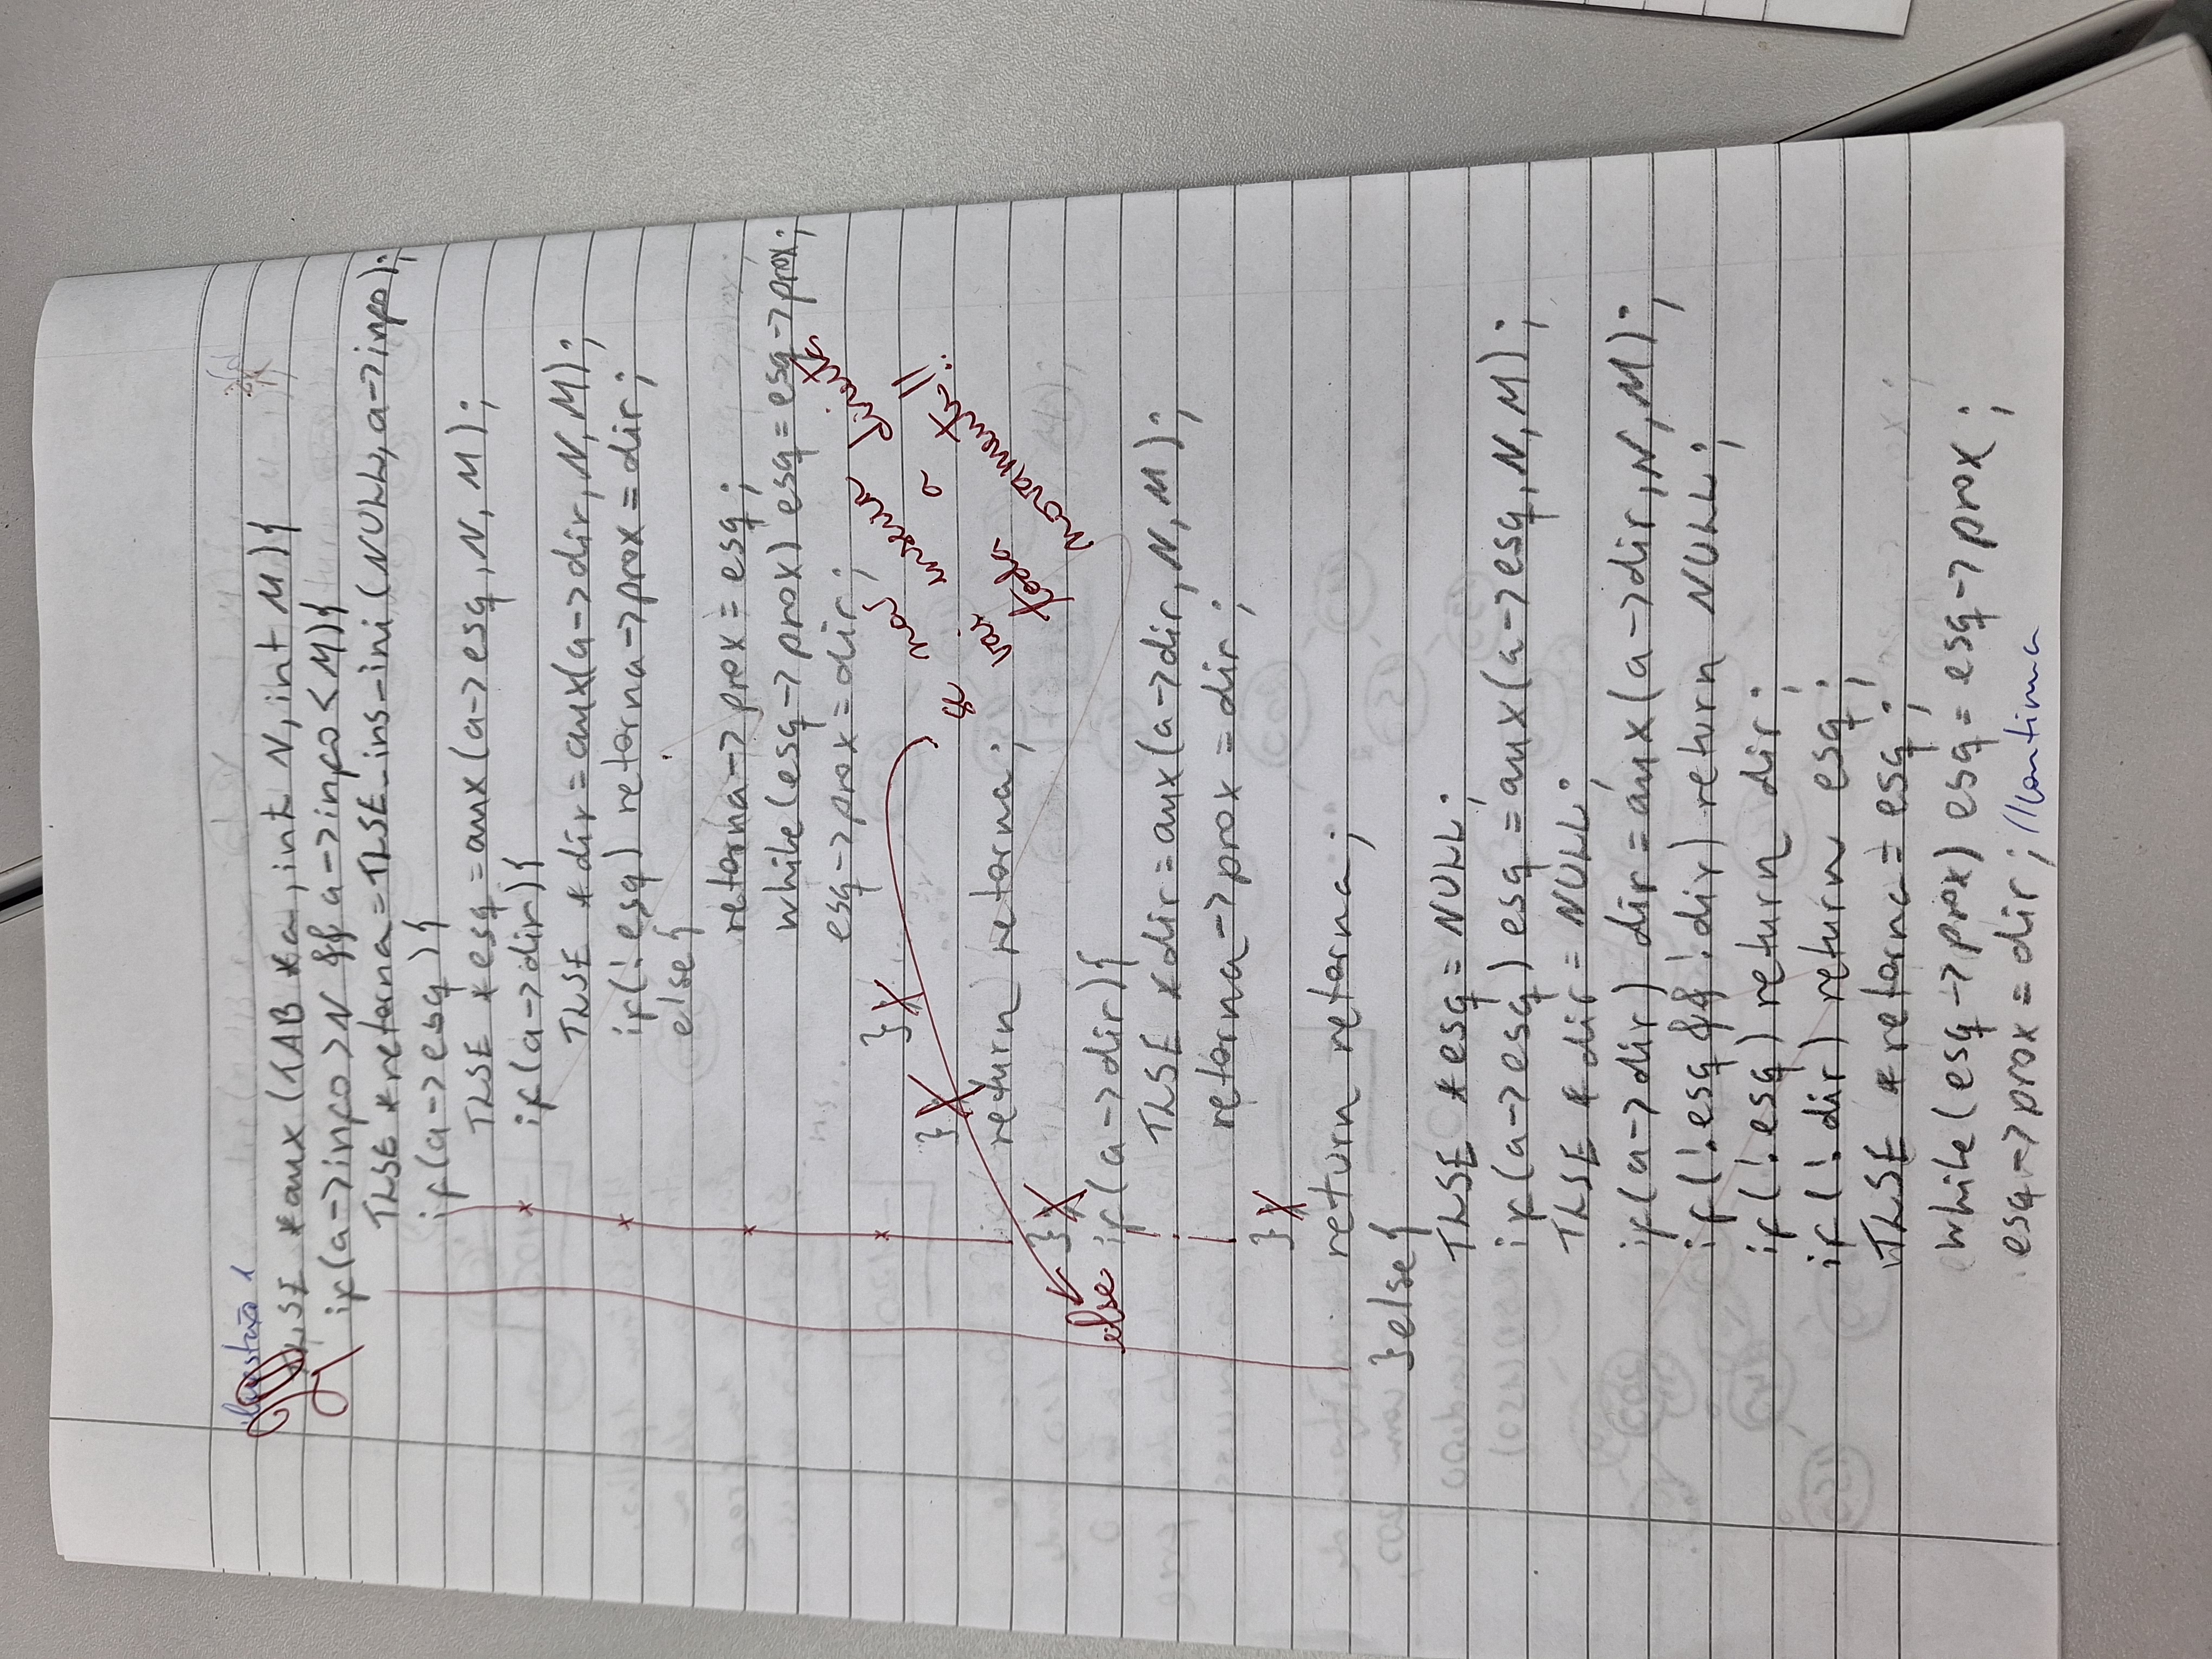 Questão 1
2,0
TLSE *aux (TAB *a, int N, int M){
if(a->info > N && a->info < M){
TLSE *retorna = TLSE_ins_ini (NULL, a->info);
if(a->esq){
TLSE *esq = aux(a->esq, N, M);
if(a->dir){
TLSE *dir = aux(a->dir, N, M);
if(!esq) retorna->prox = dir;
else{
retorna->prox = esq;
while(esq->prox) esq = esq->prox;
esq->prox = dir;
};
};
return retorna;
};
se não
vai inserir
toda a direita
novamente!!
else if(a->dir){
TLSE *dir = aux(a->dir, N, M);
retorna->prox = dir;
};
return retorna;
}else{
TLSE *esq = NULL;
if(a->esq) esq = aux(a->esq, N, M);
TLSE *dir = NULL;
if(a->dir) dir = aux(a->dir, N, M);
if(!esq && !dir) return NULL;
if(!esq) return dir;
if(!dir) return esq;
TLSE *retorna = esq;
while(esq->prox) esq = esq->prox;
esq->prox = dir; //continua